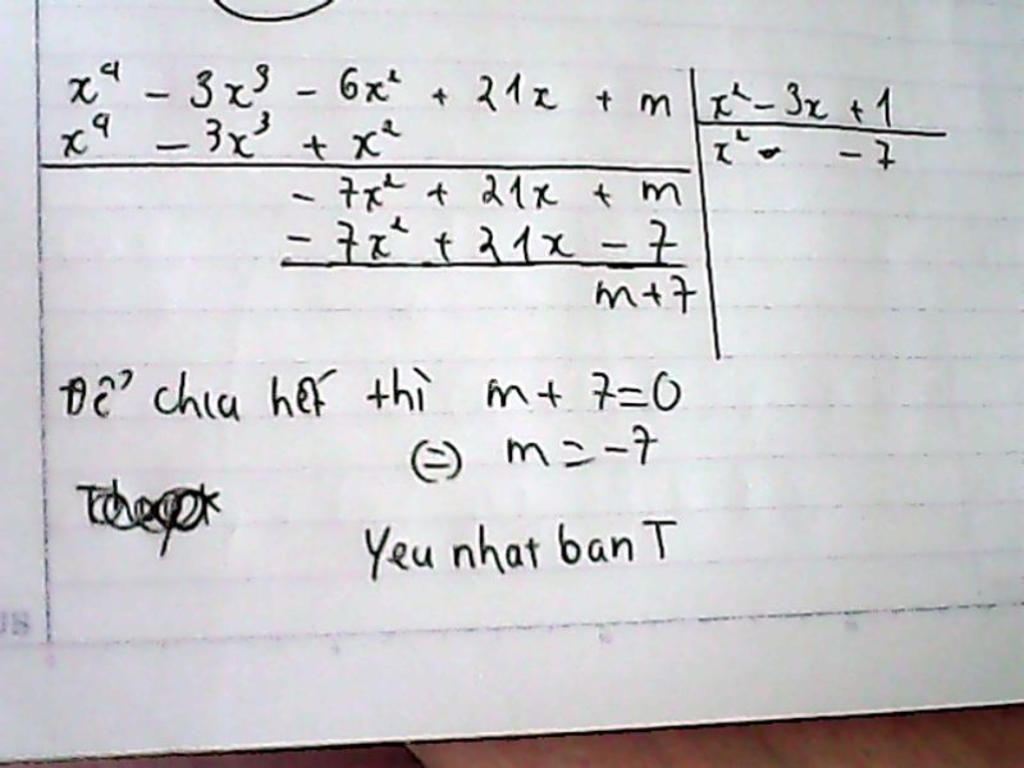 x⁴ - 3x³ - 6x² + 21x + m | x² - 3x + 1
x⁴ - 3x³ + x² | x² - - 7
- 7x² + 21x + m
- 7x² + 21x - 7
m + 7
Để chia hết thì m + 7 = 0
(=) m = -7
Yeu nhat ban T